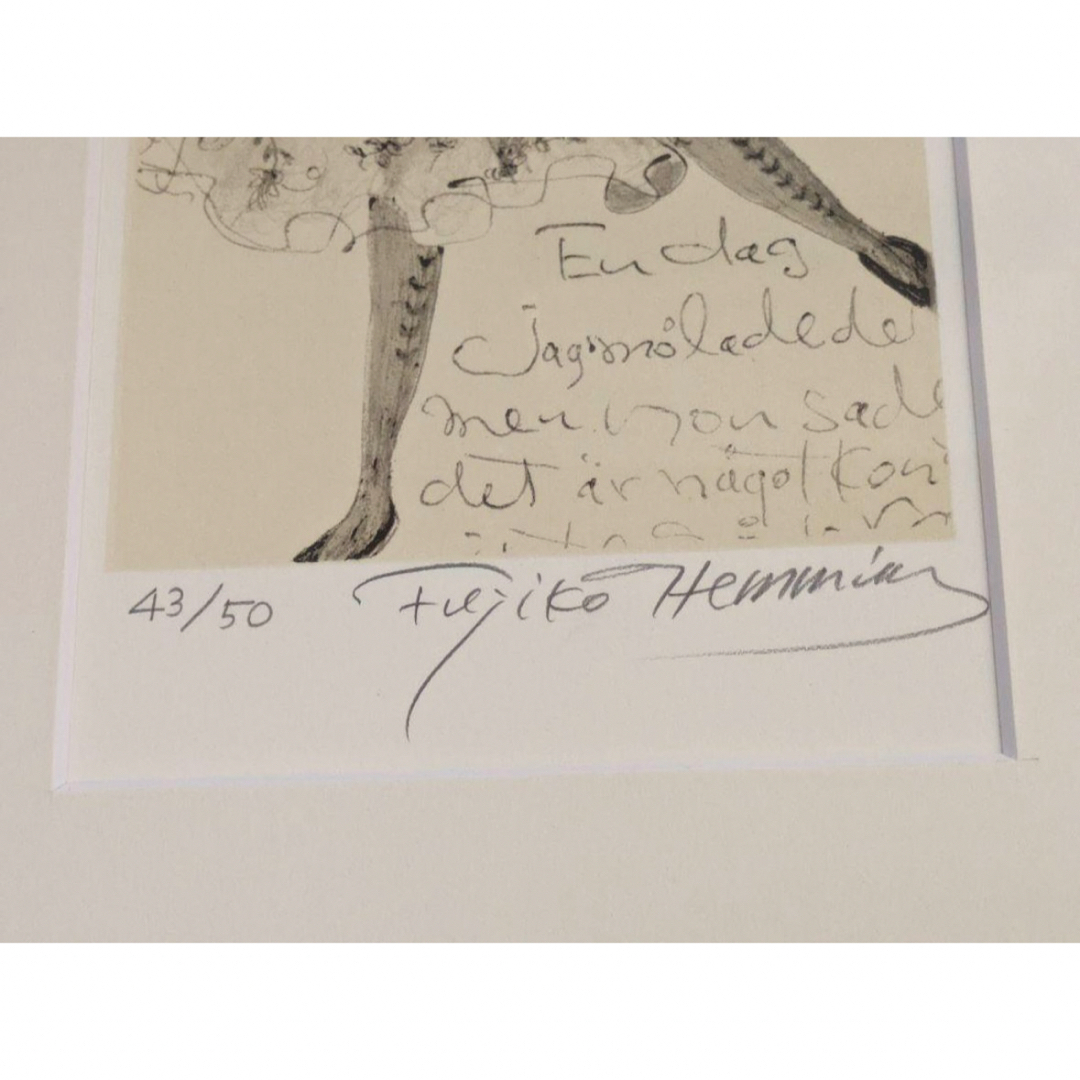 En dag
Jag målade de
men hon sade
det är något kon
43/50 Fujiko Hemming